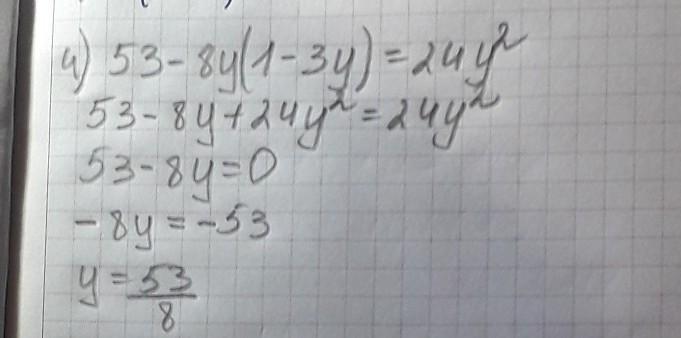 4) 53-8y(1-3y)=24y²
53-8y+24y²=24y²
53-8y=0
-8y=-53
y=53/8